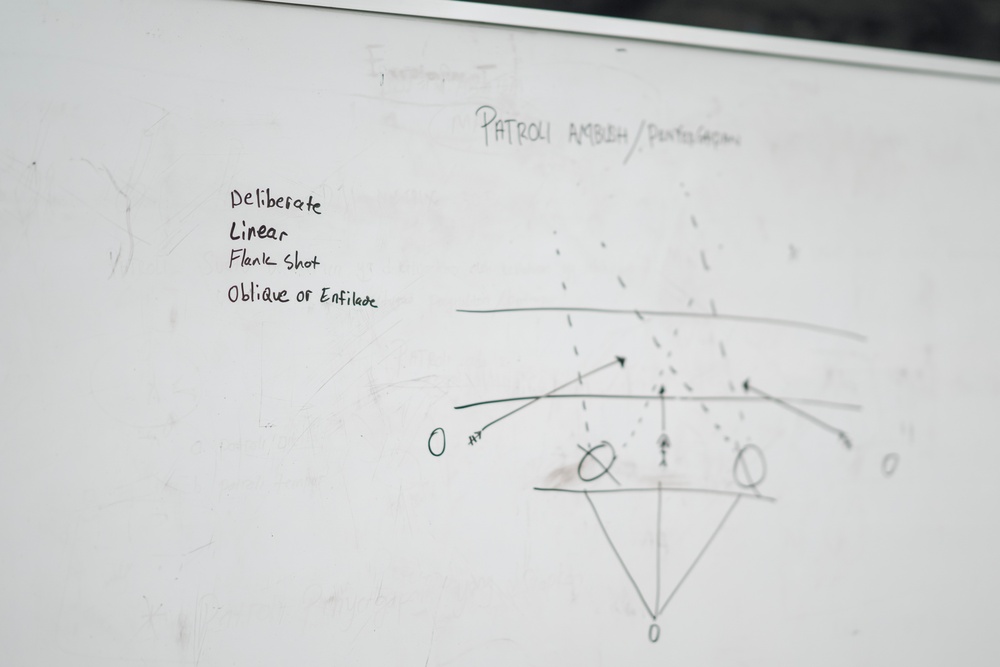 PATROLI AMBUSH/PENYERGAPAN
Deliberate
Linear
Flank Shot
Oblique or Enfilade